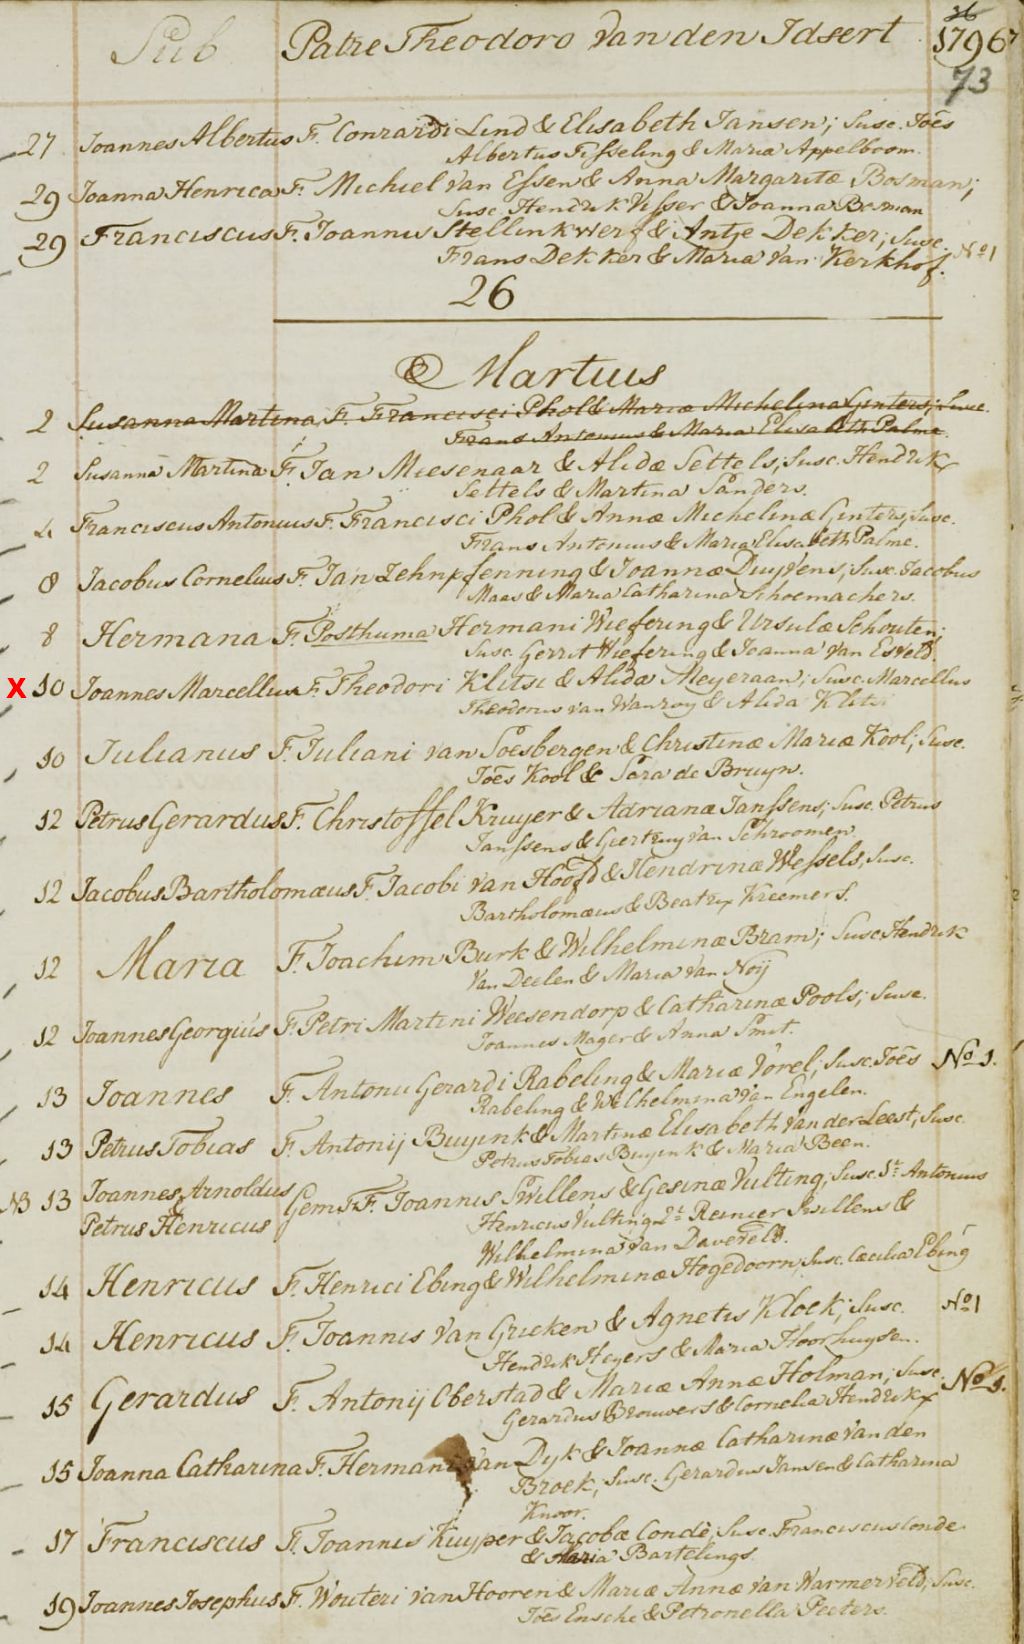 26
Sub Patre Theodoro van den Idsert 1796
73
27 Joannes Albertus F. Conrardi Lind & Elisabeth Jansen; Susc. Joēs
Albertus Tisseling & Maria Appelboom.
29 Joanna Henrica F. Michiel van Essen & Anna Margaritæ Bosman;
Susc. Hendrik Visser & Joanna Bosman
29 Franciscus F. Joannis Stellinkwerf & Antje Dekker; Susc.
Frans Dekker & Maria van Kerkhof. No 1
26
Martius
2 Susanna Martina F. Francisci Phol & Mariæ Michelina Ginters; Susc.
Frans Antonius & Maria Elisabeth Palme.
2 Susanna Martina F. Jan Miesenaar & Alidæ Settels; Susc. Hendrik
Settels & Martina Sanders.
4 Franciscus Antonius F. Francisci Phol & Annæ Michelinæ Ginters; Susc.
Frans Antonius & Maria Elisabeth Palme.
8 Jacobus Cornelius F. Jan Zehnpfenning & Joannæ Duyvens; Susc. Jacobus
Maas & Maria Catharina Schoemachers.
8 Hermana F. Posthuma Hermani Wiefering & Ursulæ Schouten;
Susc. Gerrit Wiefering & Joanna van Esveld.
X 10 Joannes Marcellus F. Theodori Klitsi & Alida Meyeraan; Susc. Marcellus
Theodorus van Wanroy & Alida Klitsi
10 Julianus F. Juliani van Soesbergen & Christinæ Mariæ Kool; Susc.
Joēs Kool & Sara de Bruyn.
12 Petrus Gerardus F. Christoffel Kruyer & Adriana Janssens; Susc. Petrus
Janssens & Geertruy van Schroomen.
12 Jacobus Bartholomæus F. Jacobi van Hoofd & Hendrinæ Wessels; Susc.
Bartholomæus & Beatrix Kreemers.
12 Maria F. Joachim Burk & Wilhelminæ Bram; Susc Hendrik
van Deelen & Maria van Noij
12 Joannes Georgius F. Petri Martini Weesendorp & Catharinæ Pools; Susc.
Joannes Mager & Anna Smit.
13 Joannes F. Antonii Gerardi Rabeling & Mariæ Vorel; Susc. Joēs No 1.
Rabeling & Wilhelmina van Engelen.
13 Petrus Tobias F. Antonij Buyink & Martinæ Elisabeth van der Leest; Susc.
Petrus Tobias Buyink & Maria Been.
NB 13 Joannes Arnoldus & Petrus Henricus Gem: F.F. Joannis Swillens & Gesinæ Vulting; Susc. 1t Antonius
Henricus Vulting 2t Reinier Swillens &
Wilhelmina van Daveveld.
14 Henricus F. Henrici Ebing & Wilhelminæ Hogedoorn; Susc. Cæcilia Ebing
14 Henricus F. Joannis van Gricken & Agnetis Kloek; Susc. No 1
Hendrik Heyers & Maria Hoorhuysen.
15 Gerardus F. Antonij Oberstad & Mariæ Annæ Holman; Susc. No 1.
Gerardus Brouwers & Cornelia Hendrikx
15 Joanna Catharina F. Hermani van Dyk & Joannæ Catharinæ van den
Broek; Susc. Gerardus Jansen & Catharina
Knoor.
17 Franciscus F. Joannis Kuyper & Jacobæ Condè; Susc. Franciscus Conde
& Maria Bartelings.
19 Joannes Josephus F. Wouteri van Hooren & Mariæ Annæ van Warmerveld; Susc.
Joēs Ensche & Petronella Peeters.